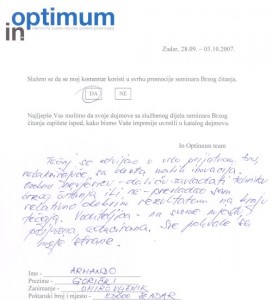 in optimum
Zadar, 28.09. – 05.10.2007.
Slažem se da se moj komentar koristi u svrhu promocije seminara Brzog čitanja.
DA NE
Najljepše Vas molimo da svoje dojmove sa službenog dijela seminara Brzog
čitanja zapišete ispod, kako bismo Vaše impresije uvrstili u katalog dojmova.
In Optimum team
Tečaj se odvijao u vrlo prijatnom tonu,
neopterećujuće sa dosta novih
Osobno - da li ću zavladati tehniku
brzog čitanja ili ne - prevladao sam
relativno dobrim rezultatom na kraju
tečaja. Voditeljica - na svome mjestu,
prijazna, educirana. Sve pohvale sa
moje strane.
Ime: ARMANDO
Prezime: GORIČKI
Zanimanje: UMIROVLJENIK
Poštanski broj i mjesto: 23000 ZADAR